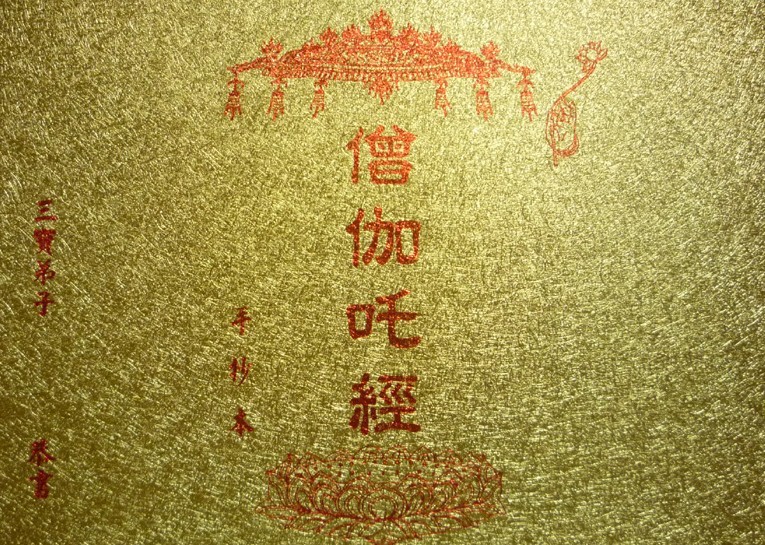 僧伽吒經
手抄本
三寶弟子 恭書